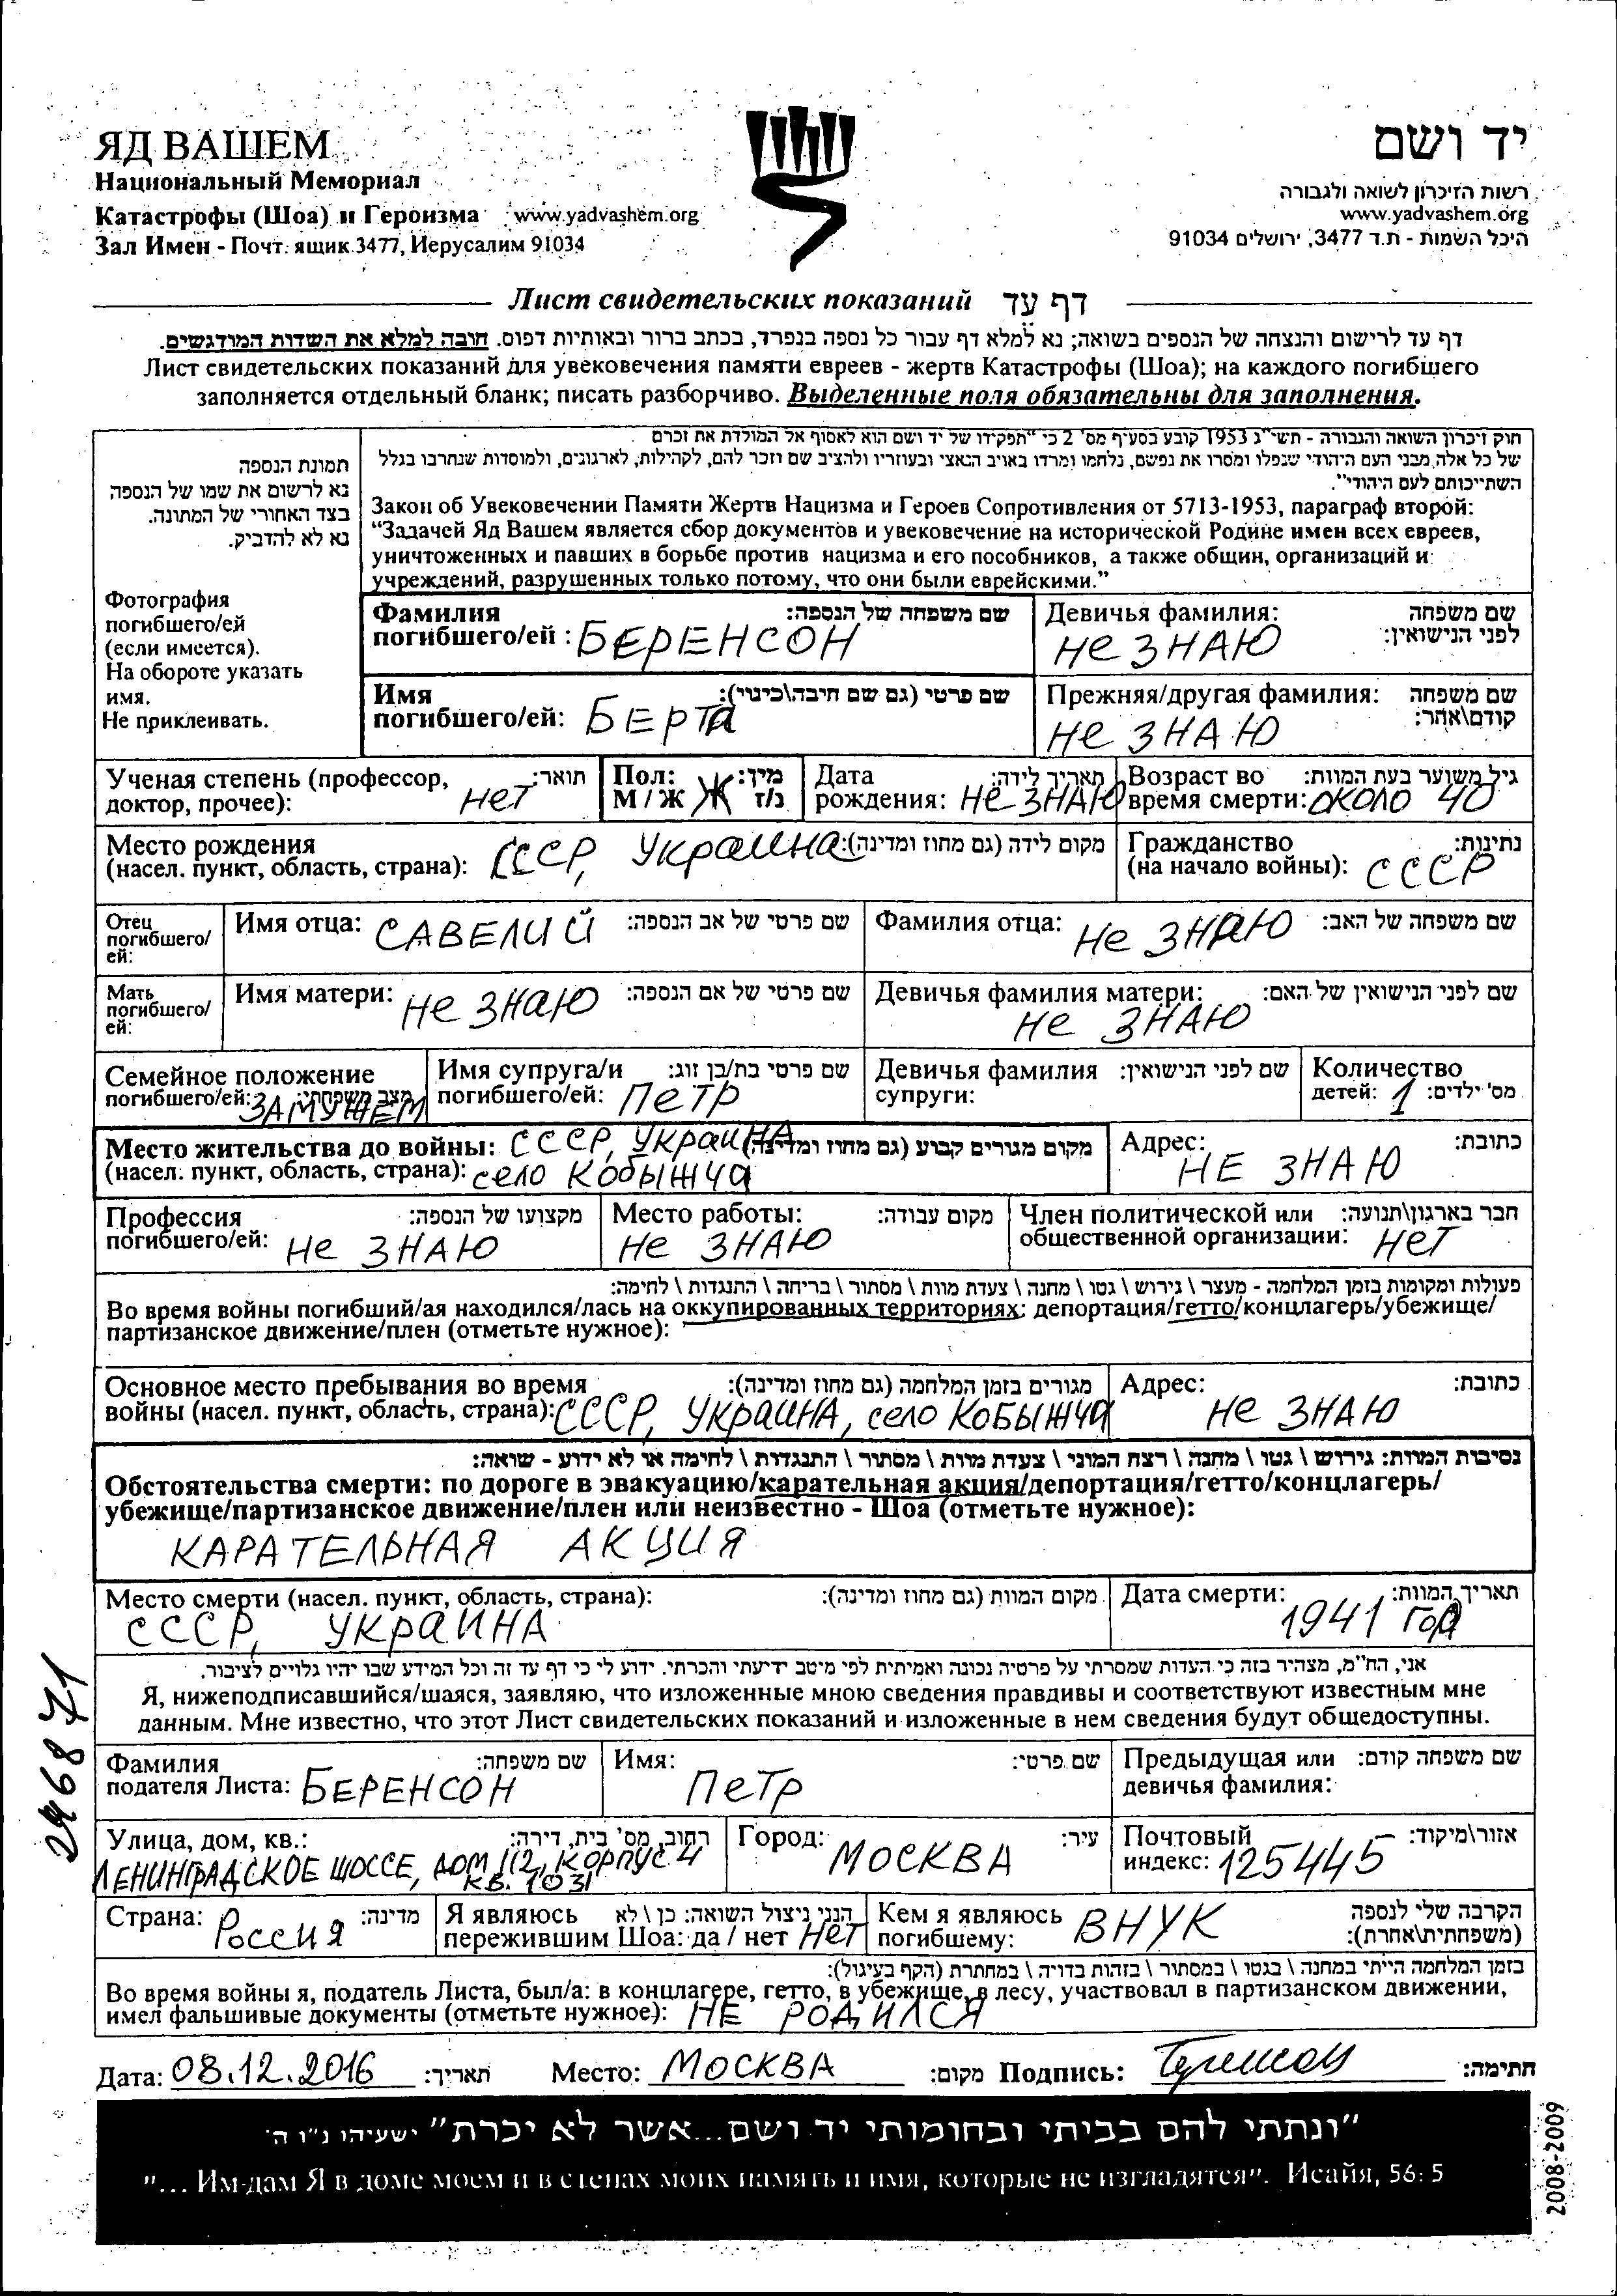 ЯД ВАШЕМ
Национальный Мемориал
Катастрофы (Шоа) и Героизма www.yadvashem.org
Зал Имен - Почт. ящик 3477, Иерусалим 91034
יד ושם
רשות הזיכרון לשואה ולגבורה
www.yadvashem.org
היכל השמות - ת.ד 3477, ירושלים 91034
Лист свидетельских показаний דף עד
דף עד לרישום והנצחה של הנספים בשואה; נא למלא דף עבור כל נספה בנפרד, בכתב ברור ובאותיות דפוס. חובה למלא את השדות המודגשים.
Лист свидетельских показаний для увековечения памяти евреев - жертв Катастрофы (Шоа); на каждого погибшего
заполняется отдельный бланк; писать разборчиво. Выделенные поля обязательны для заполнения.
תמונת הנספה
נא לרשום את שמו של הנספה
בצד האחורי של המתונה.
נא לא להדביק.
Фотография
погибшего/ей
(если имеется).
На обороте указать
имя.
Не приклеивать.
חוק זיכרון השואה והגבורה - תשי"ג 1953 קובע בסעיף מס' 2 כי "תפקידו של יד ושם הוא לאסוף אל המולדת את זכרם
של כל אלה מבני העם היהודי שנפלו ומסרו את נפשם, נלחמו ומרדו באויב הנאצי ובעוזריו ולהציב שם וזכר להם, לקהילות, לארגונים, ולמוסדות שנחרבו בגלל
השתייכותם לעם היהודי".
Закон об Увековечении Памяти Жертв Нацизма и Героев Сопротивления от 5713-1953, параграф второй:
"Задачей Яд Вашем является сбор документов и увековечение на исторической Родине имен всех евреев,
уничтоженных и павших в борьбе против нацизма и его пособников, а также общин, организаций и
учреждений, разрушенных только потому, что они были еврейскими."
Фамилия שם משפחה של הנספה:
погибшего/ей : БЕРЕНСОН
Девичья фамилия: שם משפחה
לפני הנישואין:
не знаю
Имя שם פרטי (גם שם חיבה\כינוי):
погибшего/ей: БЕРТа
Прежняя/другая фамилия: שם משפחה
קודם\אחר:
не знаю
Ученая степень (профессор, תואר:
доктор, прочее): нет
Пол: מין:
М / Ж Ж ז/נ
Дата תאריך לידה:
рождения: не знаю
Возраст во גיל משוער בעת המוות:
время смерти: около 40
Место рождения
(насел. пункт, область, страна): СССР, Украина מקום לידה (גם מחוז ומדינה):
Гражданство נתינות:
(на начало войны): СССР
Отец
погибшего/
ей:
Имя отца: САВЕЛИЙ שם פרטי של אב הנספה:
Фамилия отца: не знаю שם משפחה של האב:
Мать
погибшего/
ей:
Имя матери: не знаю שם פרטי של אם הנספה:
Девичья фамилия матери: שם לפני הנישואין של האם:
не знаю
Семейное положение
погибшего/ей: מצב משפחתי:
ЗАМУЖЕМ
Имя супруга/и שם פרטי בת/בן זוג:
погибшего/ей: Петр
Девичья фамилия שם לפני הנישואין:
супруги:
Количество
детей: 1 מס' ילדים:
Место жительства до войны: СССР, Украина מקום מגורים קבוע (גם מחוז ומדינה)
(насел. пункт, область, страна): село Кобыжча
Адрес: כתובת:
НЕ ЗНАЮ
Профессия מקצועו של הנספה:
погибшего/ей: не знаю
Место работы: מקום עבודה:
не знаю
Член политической или חבר בארגון\תנועה:
общественной организации: нет
פעולות ומקומות בזמן המלחמה - מעצר \ גירוש \ גטו \ מחנה \ צעדת מוות \ מסתור \ בריחה \ התנגדות \ לחימה:
Во время войны погибший/ая находился/лась на оккупированных территориях: депортация/гетто/концлагерь/убежище/
партизанское движение/плен (отметьте нужное):
Основное место пребывания во время מגורים בזמן המלחמה (גם מחוז ומדינה):
войны (насел. пункт, область, страна): СССР, Украина, село Кобыжча
Адрес: כתובת:
не знаю
נסיבות המוות: גירוש \ גטו \ מחנה \ רצח המוני \ צעדת מוות \ מסתור \ התנגדות \ לחימה או לא ידוע - שואה:
Обстоятельства смерти: по дороге в эвакуацию/карательная акция/депортация/гетто/концлагерь/
убежище/партизанское движение/плен или неизвестно - Шоа (отметьте нужное):
КАРАТЕЛЬНАЯ АКЦИЯ
Место смерти (насел. пункт, область, страна): מקום המוות (גם מחוז ומדינה):
СССР, Украина
Дата смерти: תאריך המוות:
1941 год
אני, הח"מ, מצהיר בזה כי העדות שמסרתי על פרטיה נכונה ואמיתית לפי מיטב ידיעתי והכרתי. ידוע לי כי דף עד זה וכל המידע שבו יהיו גלויים לציבור.
Я, нижеподписавшийся/шаяся, заявляю, что изложенные мною сведения правдивы и соответствуют известным мне
данным. Мне известно, что этот Лист свидетельских показаний и изложенные в нем сведения будут общедоступны.
Фамилия שם משפחה:
подателя Листа: БЕРЕНСОН
Имя: שם פרטי:
Петр
Предыдущая или שם משפחה קודם:
девичья фамилия:
Улица, дом, кв.: רחוב, מס' בית, דירה:
ЛЕНИНГРАДСКОЕ ШОССЕ, ДОМ 112, КОРПУС 4
КВ. 1031
Город: עיר:
МОСКВА
Почтовый אזור\מיקוד:
индекс: 125445
Страна: Россия מדינה:
Я являюсь הנני ניצול השואה: כן \ לא
пережившим Шоа: да / нет нет
Кем я являюсь הקרבה שלי לנספה
погибшему: ВНУК (משפחתית\אחרת):
בזמן המלחמה הייתי במחנה \ בגטו \ במסתור \ בזהות בדויה \ במחתרת (הקף בעיגול):
Во время войны я, податель Листа, был/а: в концлагере, гетто, в убежище, в лесу, участвовал в партизанском движении,
имел фальшивые документы (отметьте нужное): НЕ РОДИЛСЯ
Дата: 08.12.2016 תאריך: Место: МОСКВА מקום: Подпись: חתימה:
"ונתתי להם בביתי ובחומותי יד ושם...אשר לא יכרת" ישעיהו נ"ו ה'
"... Им дам Я в доме моем и в стенах моих память и имя, которые не изгладятся". Исайя, 56: 5
2008-2009